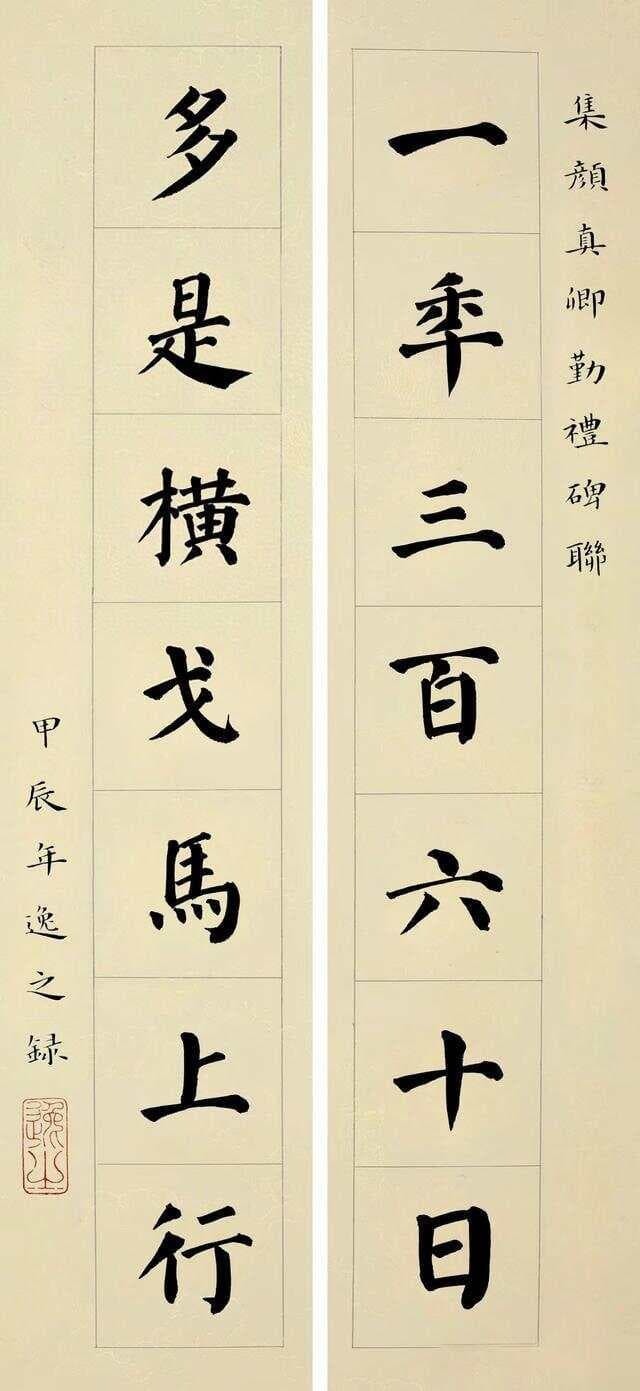 集顔真卿勤禮碑聯
一年三百六十日
多是橫戈馬上行
甲辰年逸之録
逸之